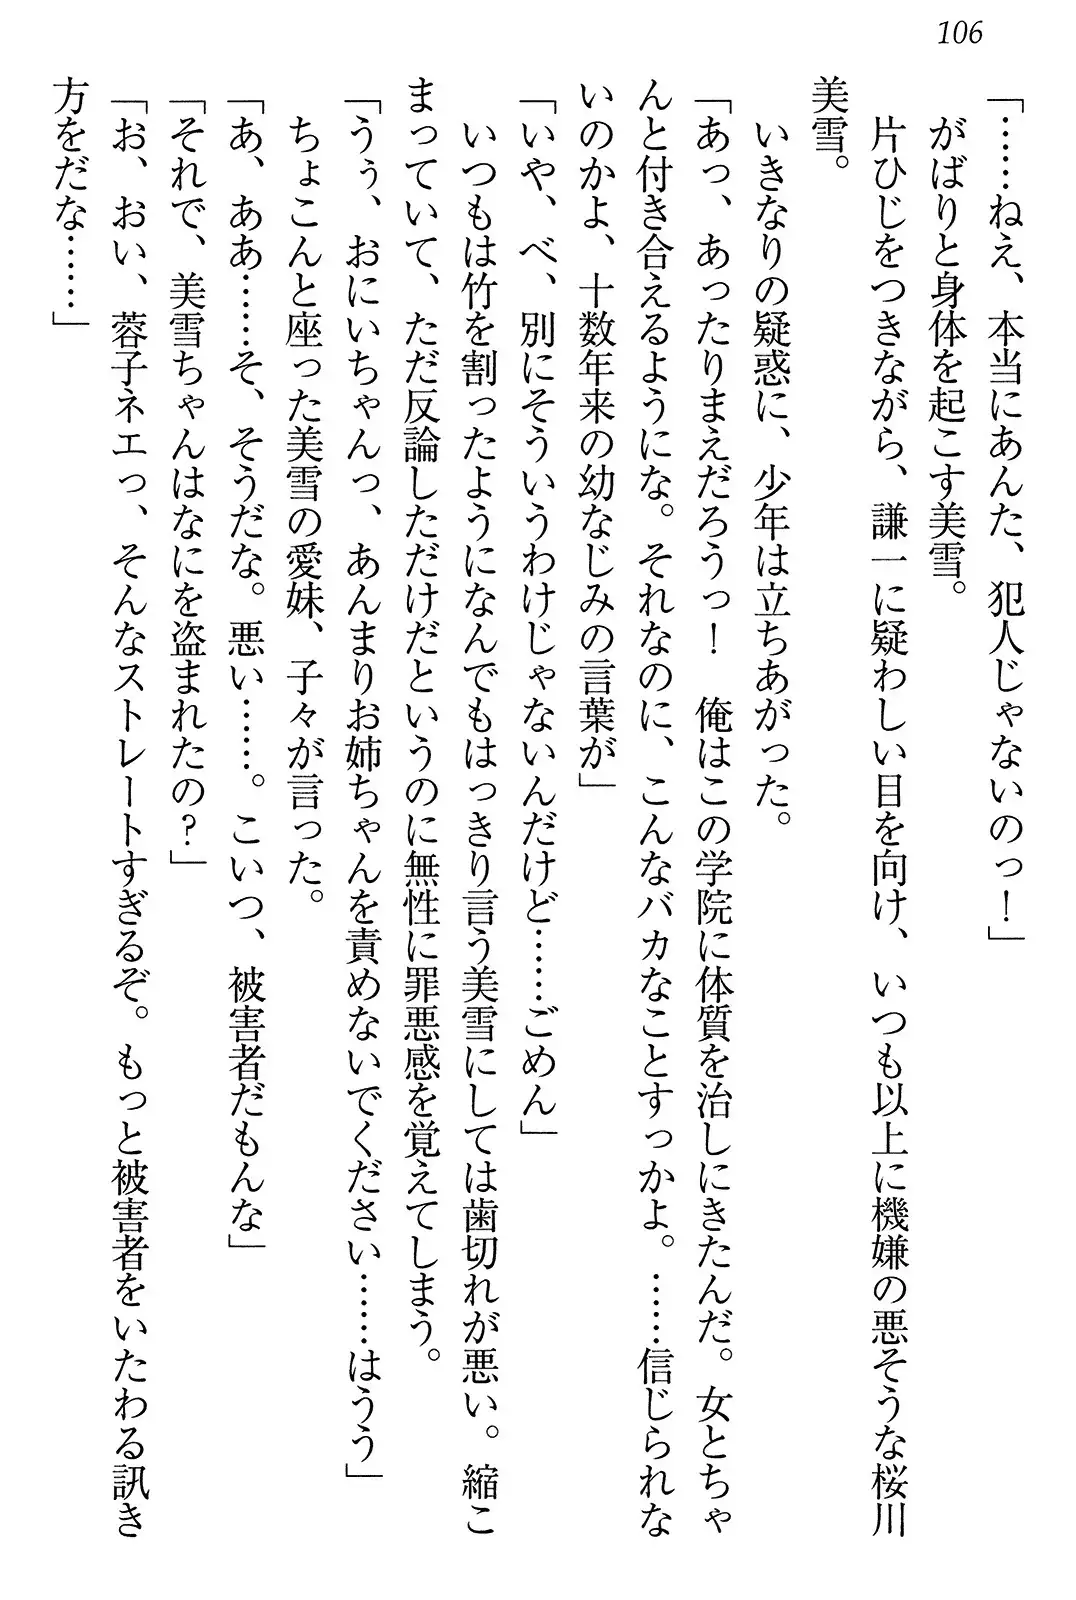 106
「……ねえ、本当にあんた、犯人じゃないのっ！」
　がばりと身体を起こす美雪。
　片ひじをつきながら、謙一に疑わしい目を向け、いつも以上に機嫌の悪そうな桜川
美雪。
　いきなりの疑惑に、少年は立ちあがった。
「あっ、あったりまえだろうっ！　俺はこの学院に体質を治しにきたんだ。女とちゃ
んと付き合えるようにな。それなのに、こんなバカなことすっかよ。……信じられな
いのかよ、十数年来の幼なじみの言葉が」
「いや、べ、別にそういうわけじゃないんだけど……ごめん」
　いつもは竹を割ったようになんでもはっきり言う美雪にしては歯切れが悪い。縮こ
まっていて、ただ反論しただけだというのに無性に罪悪感を覚えてしまう。
「うぅ、おにいちゃんっ、あんまりお姉ちゃんを責めないでください……はうう」
　ちょこんと座った美雪の愛妹、子々が言った。
「あ、ああ……そ、そうだな。悪い……。こいつ、被害者だもんな」
「それで、美雪ちゃんはなにを盗まれたの？」
「お、おい、蓉子ネエっ、そんなストレートすぎるぞ。もっと被害者をいたわる訊き
方をだな……」